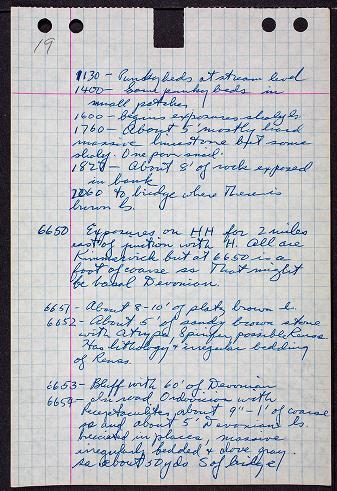 19
1130 - Punky beds at stream level
1400 - Some punky beds in
small patches
1600 - begins exposures shaly ls
1760 - About 5' mostly hard
massive limestone but some
shaly. One poor snail.
1825 - About 8' of rock exposed
in bank
2060 to bridge where there is
brown ls.
6650 Exposures on HH for 2 miles
east of juction with H. All are
Kimmswick but at 6650 is a
foot of coarse ss that might
be basal Devonian.
6651 - About 8-10' of platy brown ls
6652 - About 5' of sandy brown stone
with Atrypa, Spirifer, possible
Has lithology & irregular bedding
of
6653 - Bluff with 60' of Devonian
6654 - In road Ordovician with
Receptaculites, about 9"-1' of coarse
ss and about 5' Devonian ls.
breciated in places, massive
irregularly bedded & dove gray.
ss about 50 yds S of bridge